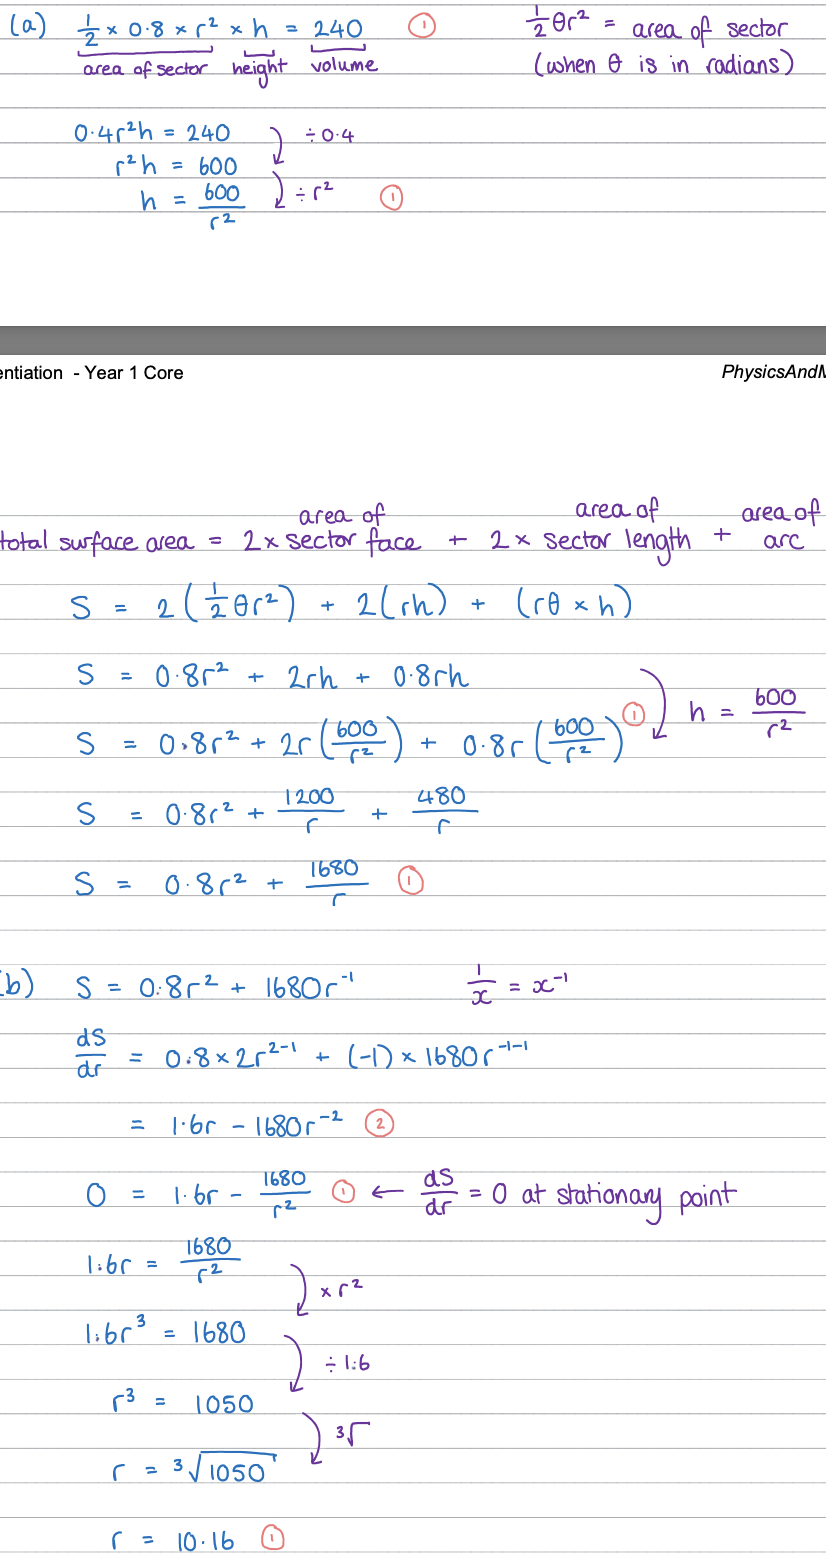 (a) 1/2 × 0.8 × r² × h = 240 ① 1/2 θr² = area of sector
area of sector height volume (when θ is in radians)
0.4r²h = 240 ÷0.4
r²h = 600
h = 600/r² ÷r² ①
entiation - Year 1 Core PhysicsAndM
total surface area = 2 × area of sector face + 2 × area of sector length + area of arc
S = 2(1/2 θr²) + 2(rh) + (rθ × h)
S = 0.8r² + 2rh + 0.8rh
S = 0.8r² + 2r(600/r²) + 0.8r(600/r²) ① h = 600/r²
S = 0.8r² + 1200/r + 480/r
S = 0.8r² + 1680/r ①
b) S = 0.8r² + 1680r⁻¹ 1/x = x⁻¹
dS/dr = 0.8×2r²⁻¹ + (-1) × 1680r⁻¹⁻¹
= 1.6r - 1680r⁻² ②
0 = 1.6r - 1680/r² ① ← dS/dr = 0 at stationary point
1.6r = 1680/r²
×r²
1.6r³ = 1680
÷1.6
r³ = 1050
³√
r = ³√1050
r = 10.16 ①